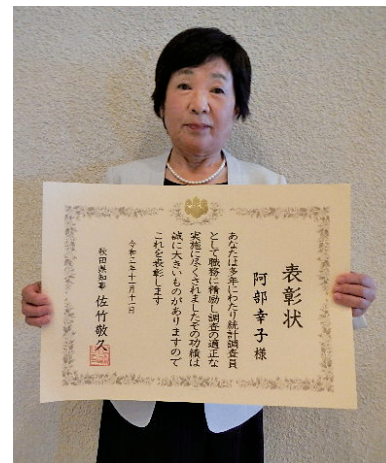 表彰状
阿部幸子様
あなたは多年にわたり統計調査員
として職務に精励し調査の適正な
実施に尽くされましたその功績は
誠に大きいものがありますので
これを表彰します
令和二年十一月十二日
秋田県知事 佐竹敬久